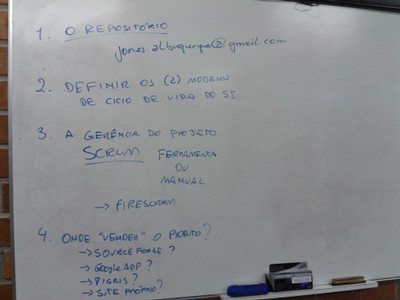 1. O REPOSITÓRIO
jones.albuquerque@gmail.com
2. DEFINIR OS (2) MODELOS
DE CICLO DE VIDA DO SI
3. A GERÊNCIA DO PROJETO
SCRUM FERRAMENTA
OU
MANUAL
→ FIRESCRUM
4. ONDE "VENDER" O PRODUTO?
→ SOURCE FORGE?
→ GOOGLE APP?
→ TIGRIS?
→ SITE PRÓPRIO?